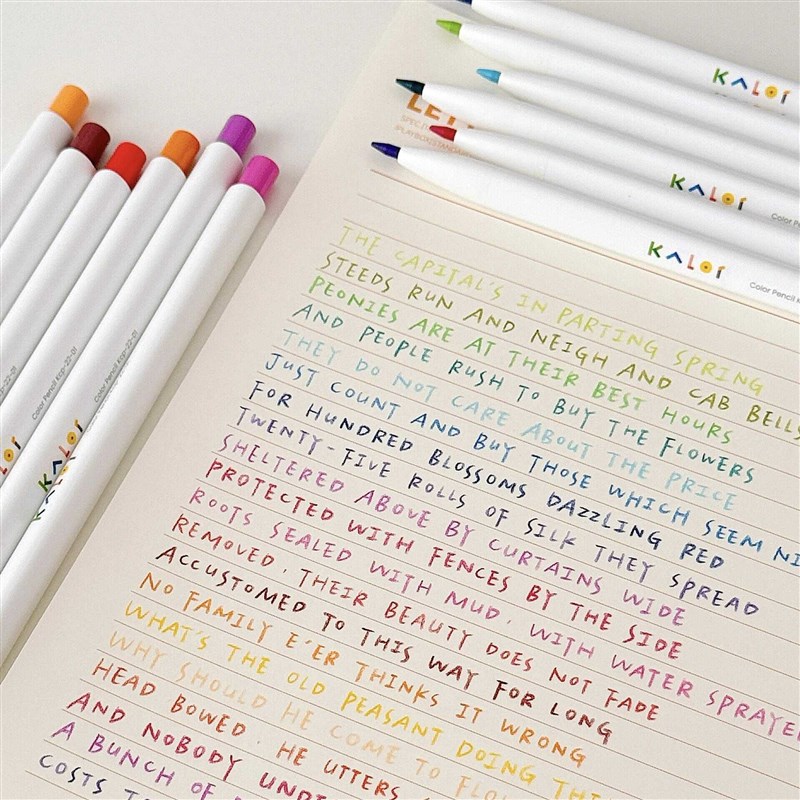 KALOr
KALOr
Color Pe
KALOr
Color Pencil K
LET
THE CAPITAL'S IN PARTING SPRING
STEEDS RUN AND NEIGH AND CAB BELLS
PEONIES ARE AT THEIR BEST HOURS
AND PEOPLE RUSH TO BUY THE FLOWERS
THEY DO NOT CARE ABOUT THE PRICE
JUST COUNT AND BUY THOSE WHICH SEEM NI
FOR HUNDRED BLOSSOMS DAZZLING RED
TWENTY-FIVE ROLLS OF SILK THEY SPREAD
SHELTERED ABOVE BY CURTAINS WIDE
PROTECTED WITH FENCES BY THE SIDE
ROOTS SEALED WITH MUD, WITH WATER SPRAYE
REMOVED, THEIR BEAUTY DOES NOT FADE
ACCUSTOMED TO THIS WAY FOR LONG
NO FAMILY E'ER THINKS IT WRONG
WHAT'S THE OLD PEASANT DOING THE
WHY SHOULD HE COME TO FLO
HEAD BOWED, HE UTTERS
AND NOBODY UND
A BUNCH OF
COSTS T
Color Pencil Kcp-22-01
Color Pencil Kcp-22-01
KALOr
KALOr